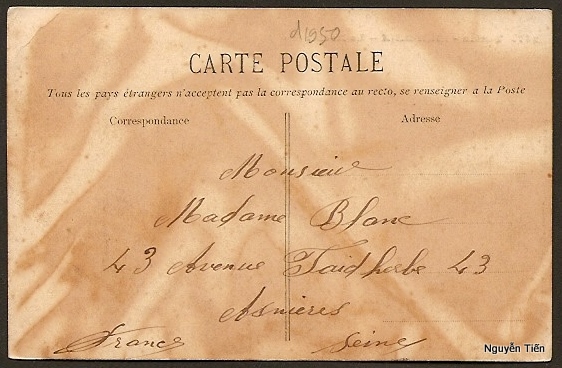 d1950
CARTE POSTALE
Tous les pays étrangers n'acceptent pas la correspondance au recto, se renseigner a la Poste
Correspondance
Adresse
Monsieur
Madame Blanc
43 Avenue Faidherbe 43
Asnieres
France Seine
Nguyễn Tiến